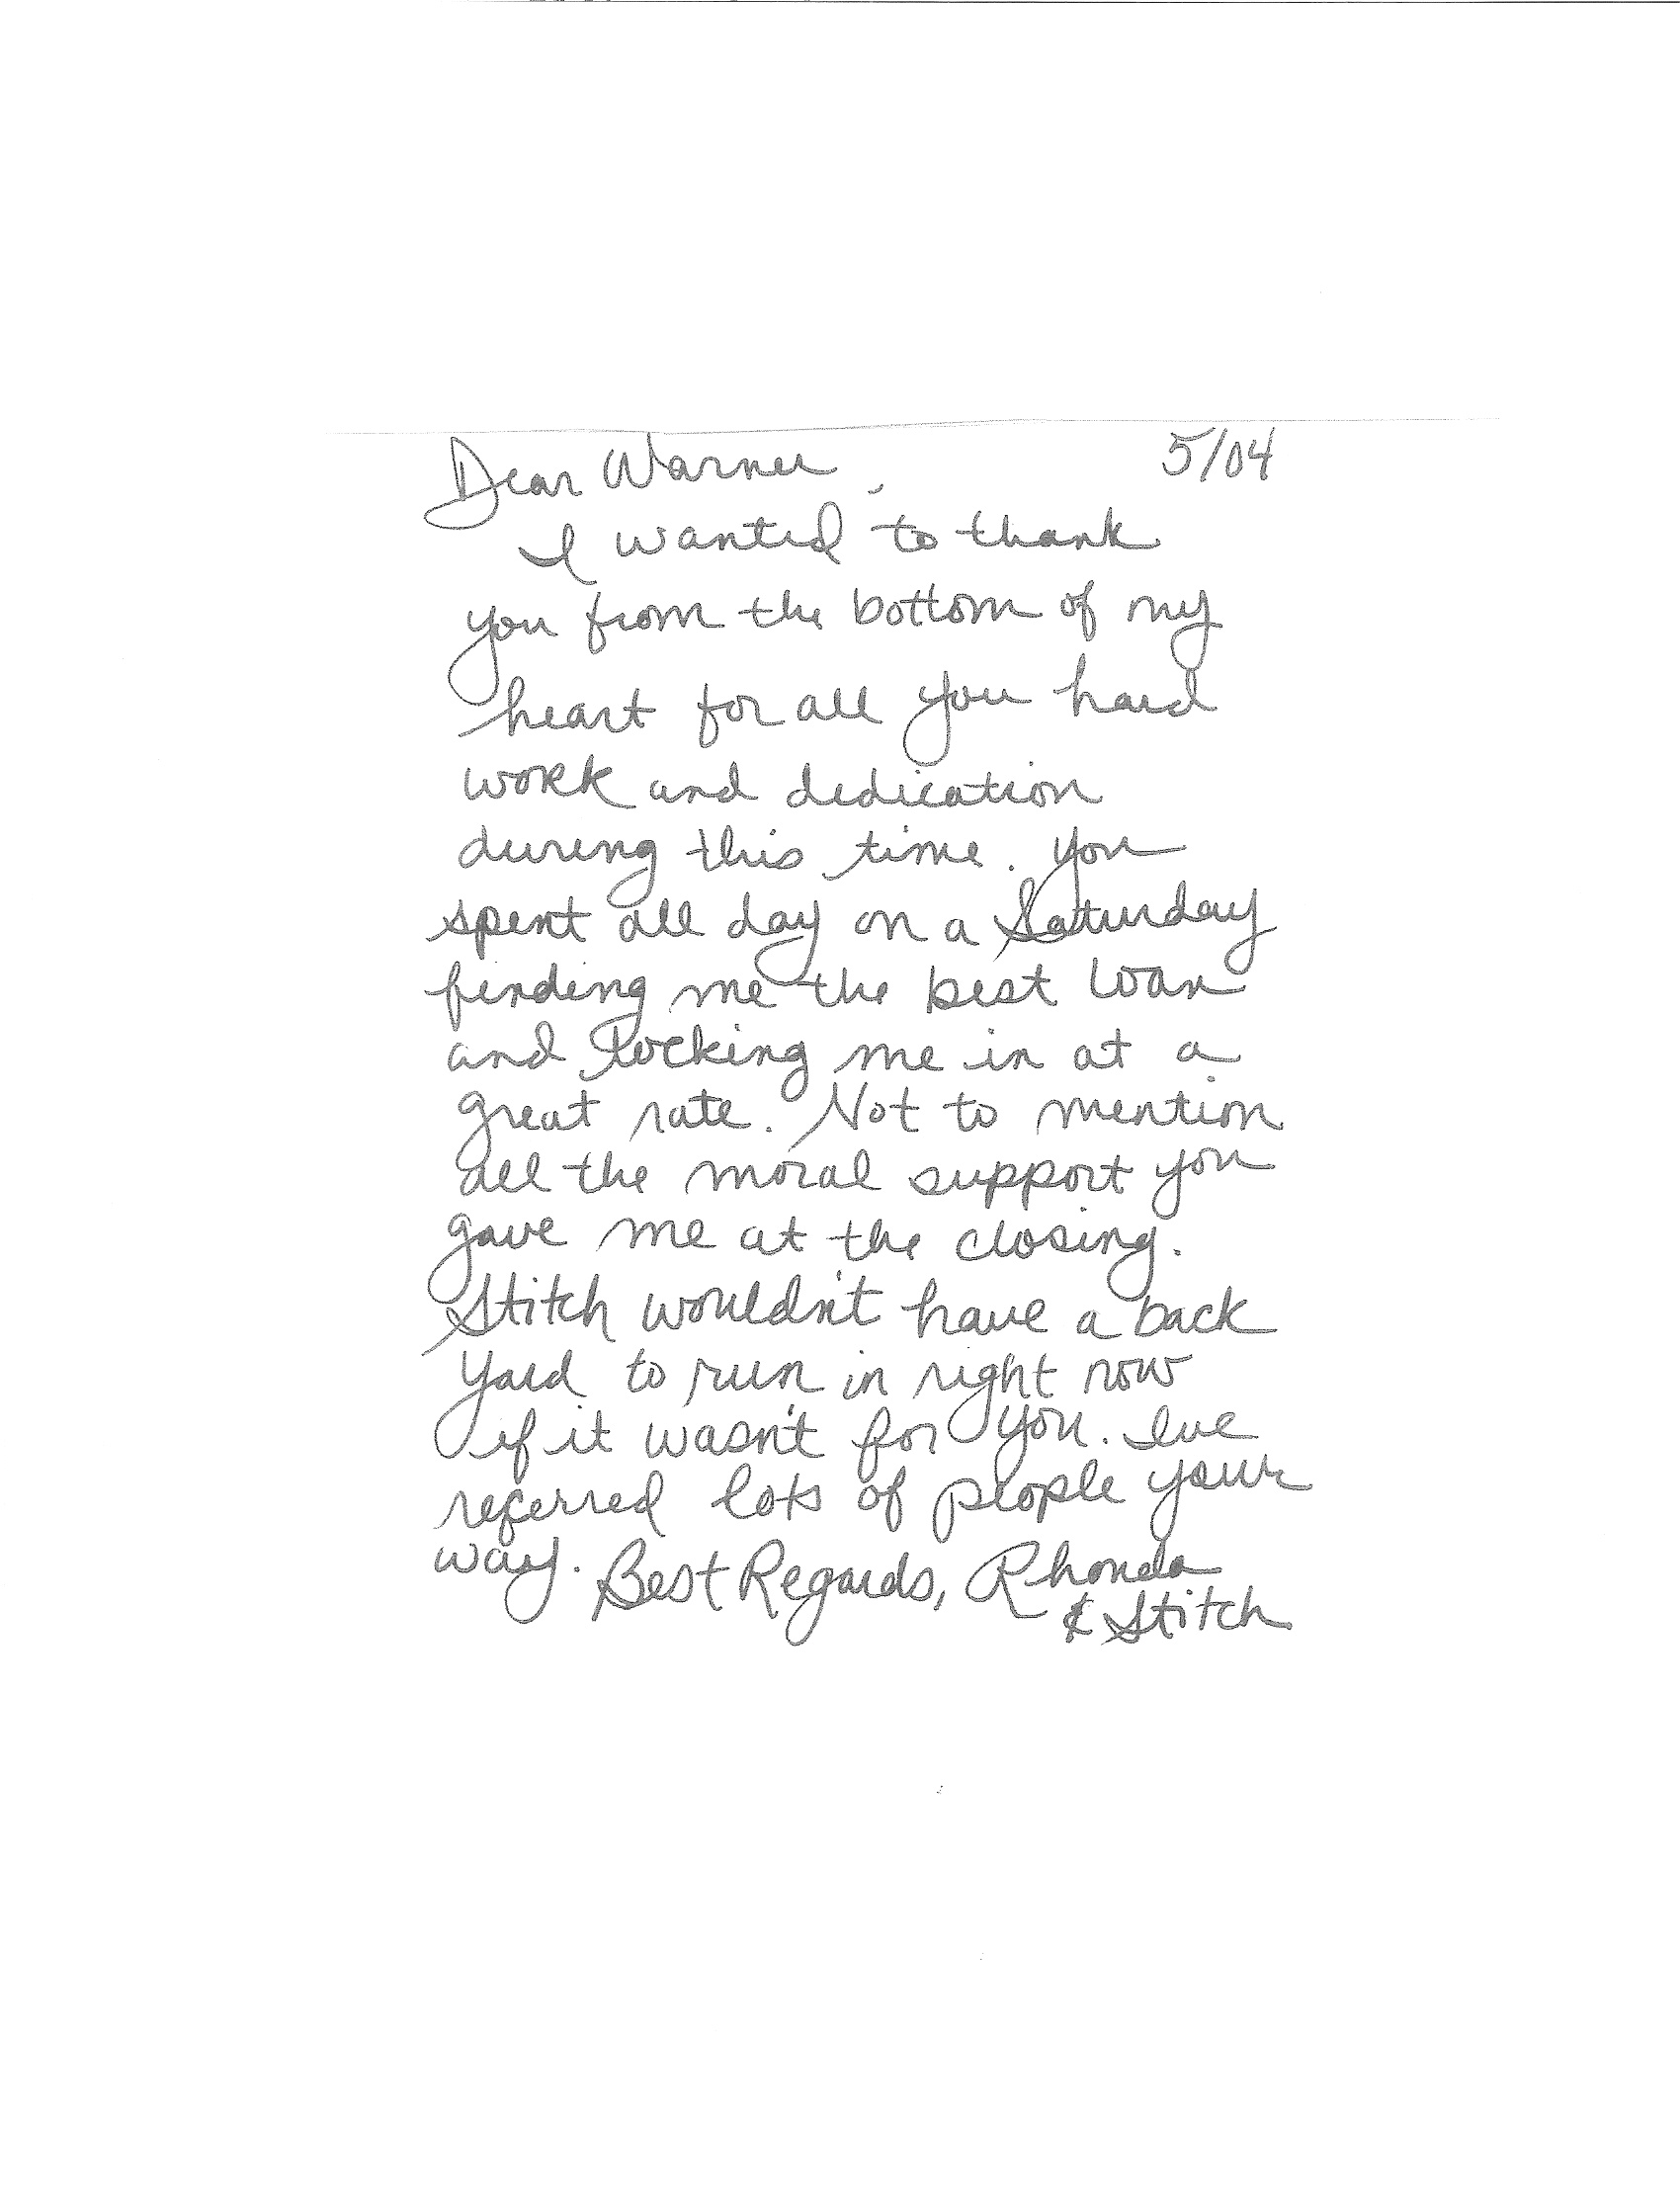 Dear Warner, 5/04
I wanted to thank
you from the bottom of my
heart for all you hard
work and dedication
during this time. You
spent all day on a Saturday
finding me the best loan
and locking me in at a
great rate. Not to mention
all the moral support you
gave me at the closing.
Stitch wouldn't have a back
yard to run in right now
if it wasn't for you. I've
referred lots of people your
way. Best Regards, Rhonda
& Stitch